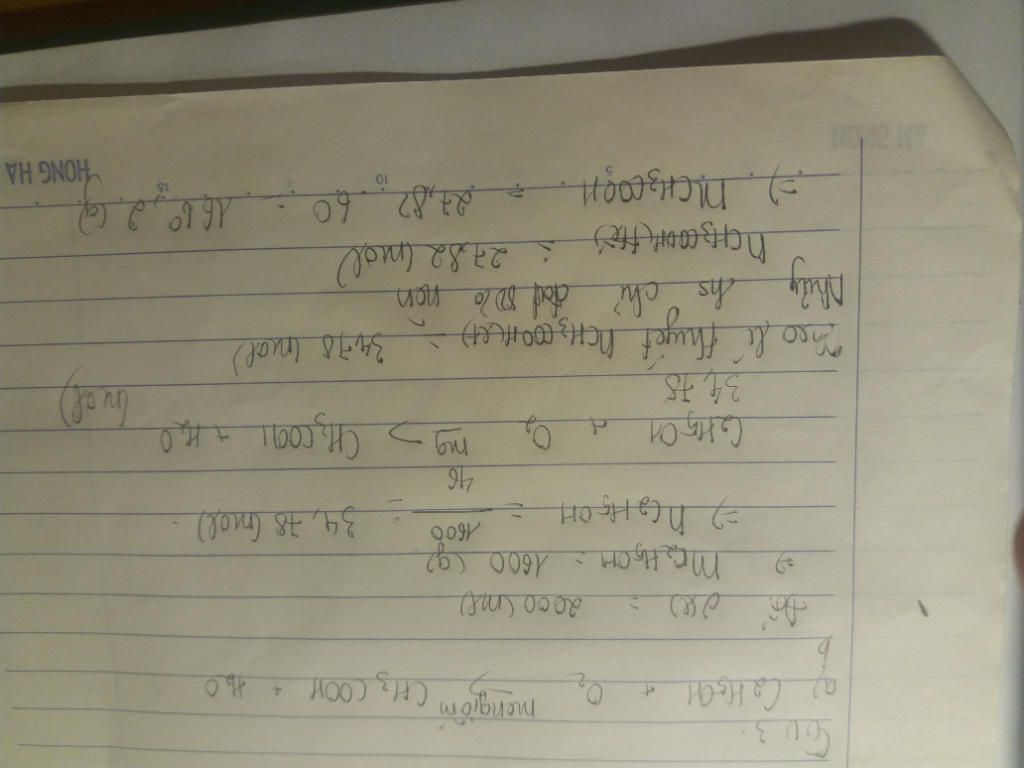 Câu 3:
a) C2H5OH + O2 mengiấm → CH3COOH + H2O
b
Đổi 2(l) = 2000 (ml)
=> mC2H5OH = 1600 (g)
=> nC2H5OH = 1600/46 = 34,78 (mol)
C2H5OH + O2 mg → CH3COOH + H2O
34,78 (mol)
Theo lí thuyết nCH3COOH(LT) = 34,78 (mol)
Nhưng hs chỉ đạt 80% nên
nCH3COOH(ttế) = 27,82 (mol)
=> mCH3COOH = 27,82 . 60 = 1669,2 (g)
HONG HA
HONG HA